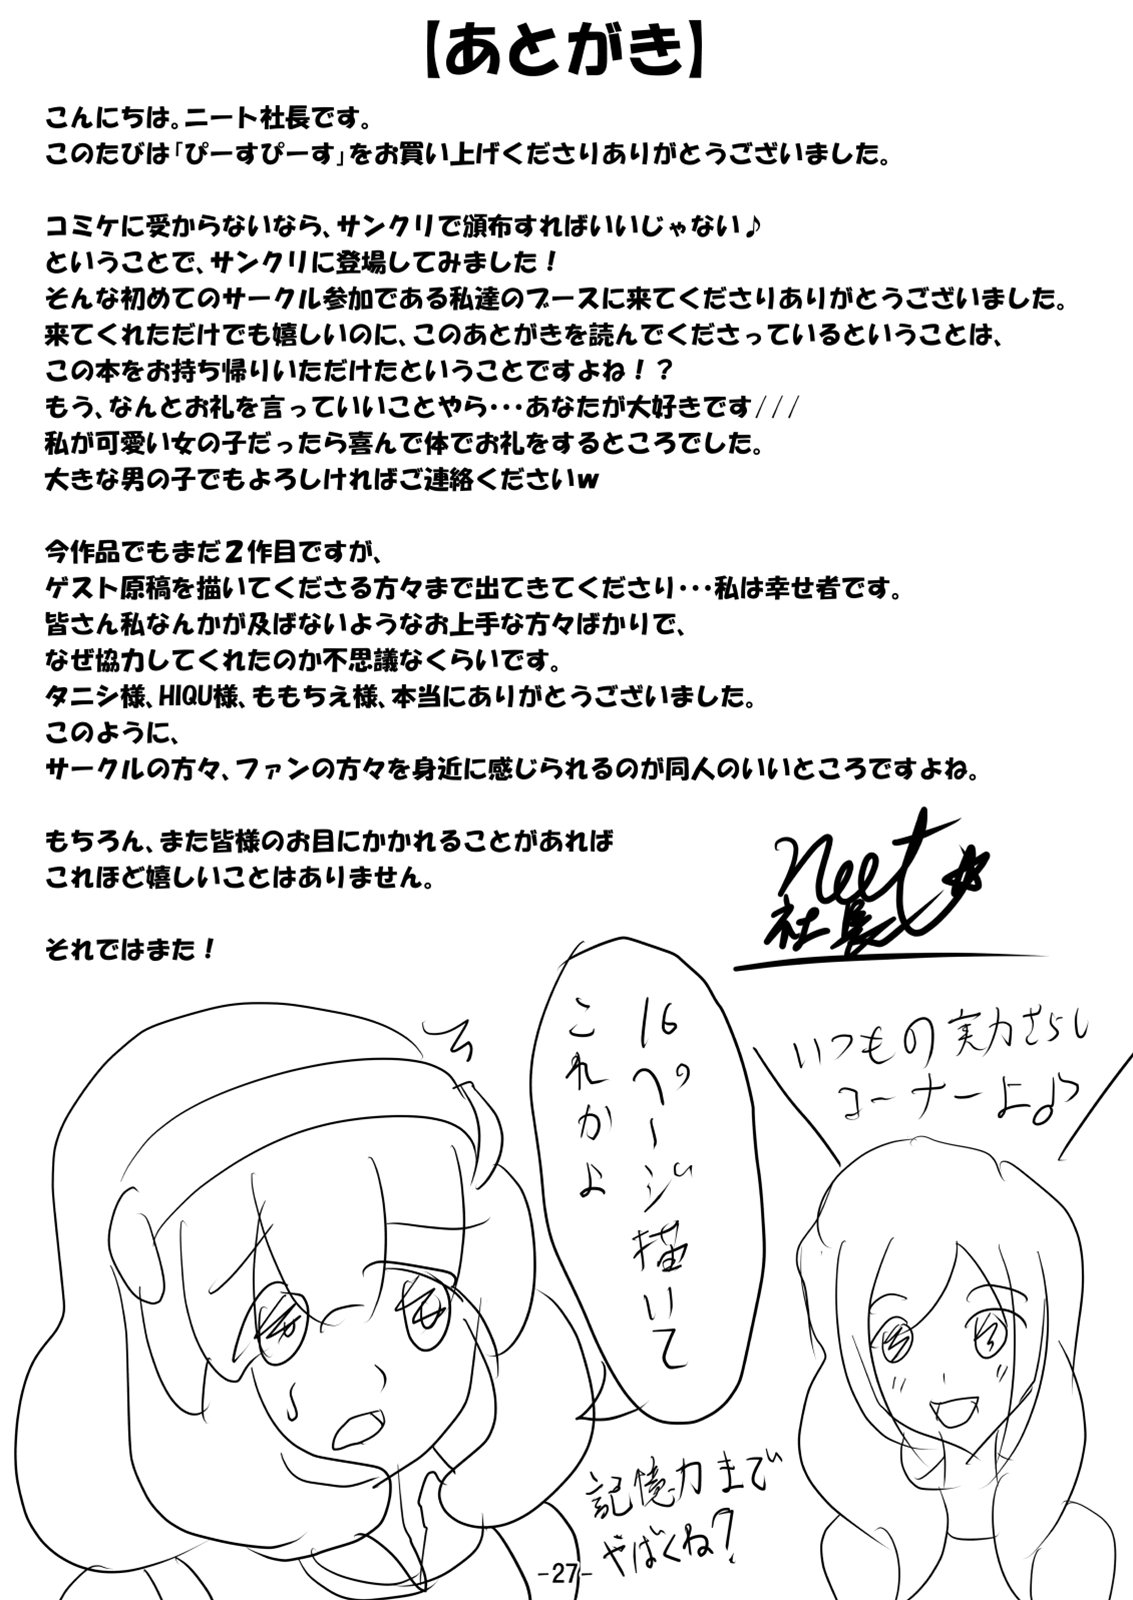 【あとがき】
こんにちは。ニート社長です。
このたびは「ぴーすぴーす」をお買い上げくださりありがとうございました。
コミケに受からないなら、サンクリで頒布すればいいじゃない♪
ということで、サンクリに登場してみました！
そんな初めてのサークル参加である私達のブースに来てくださりありがとうございました。
来てくれただけでも嬉しいのに、このあとがきを読んでくださっているということは、
この本をお持ち帰りいただけたということですよね！？
もう、なんとお礼を言っていいことやら･･･あなたが大好きです///
私が可愛い女の子だったら喜んで体でお礼をするところでした。
大きな男の子でもよろしければご連絡くださいｗ
今作品でもまだ２作目ですが、
ゲスト原稿を描いてくださる方々まで出てきてくださり･･･私は幸せ者です。
皆さん私なんかが及ばないようなお上手な方々ばかりで、
なぜ協力してくれたのか不思議なくらいです。
タニシ様、HIQU様、ももちえ様、本当にありがとうございました。
このように、
サークルの方々、ファンの方々を身近に感じられるのが同人のいいところですよね。
もちろん、また皆様のお目にかかれることがあれば
これほど嬉しいことはありません。
それではまた！
neet
社長
16ページ描いて
これかよ
いつもの実力さらし
コーナーよ♪
記憶力まで
やばくね？
-27-